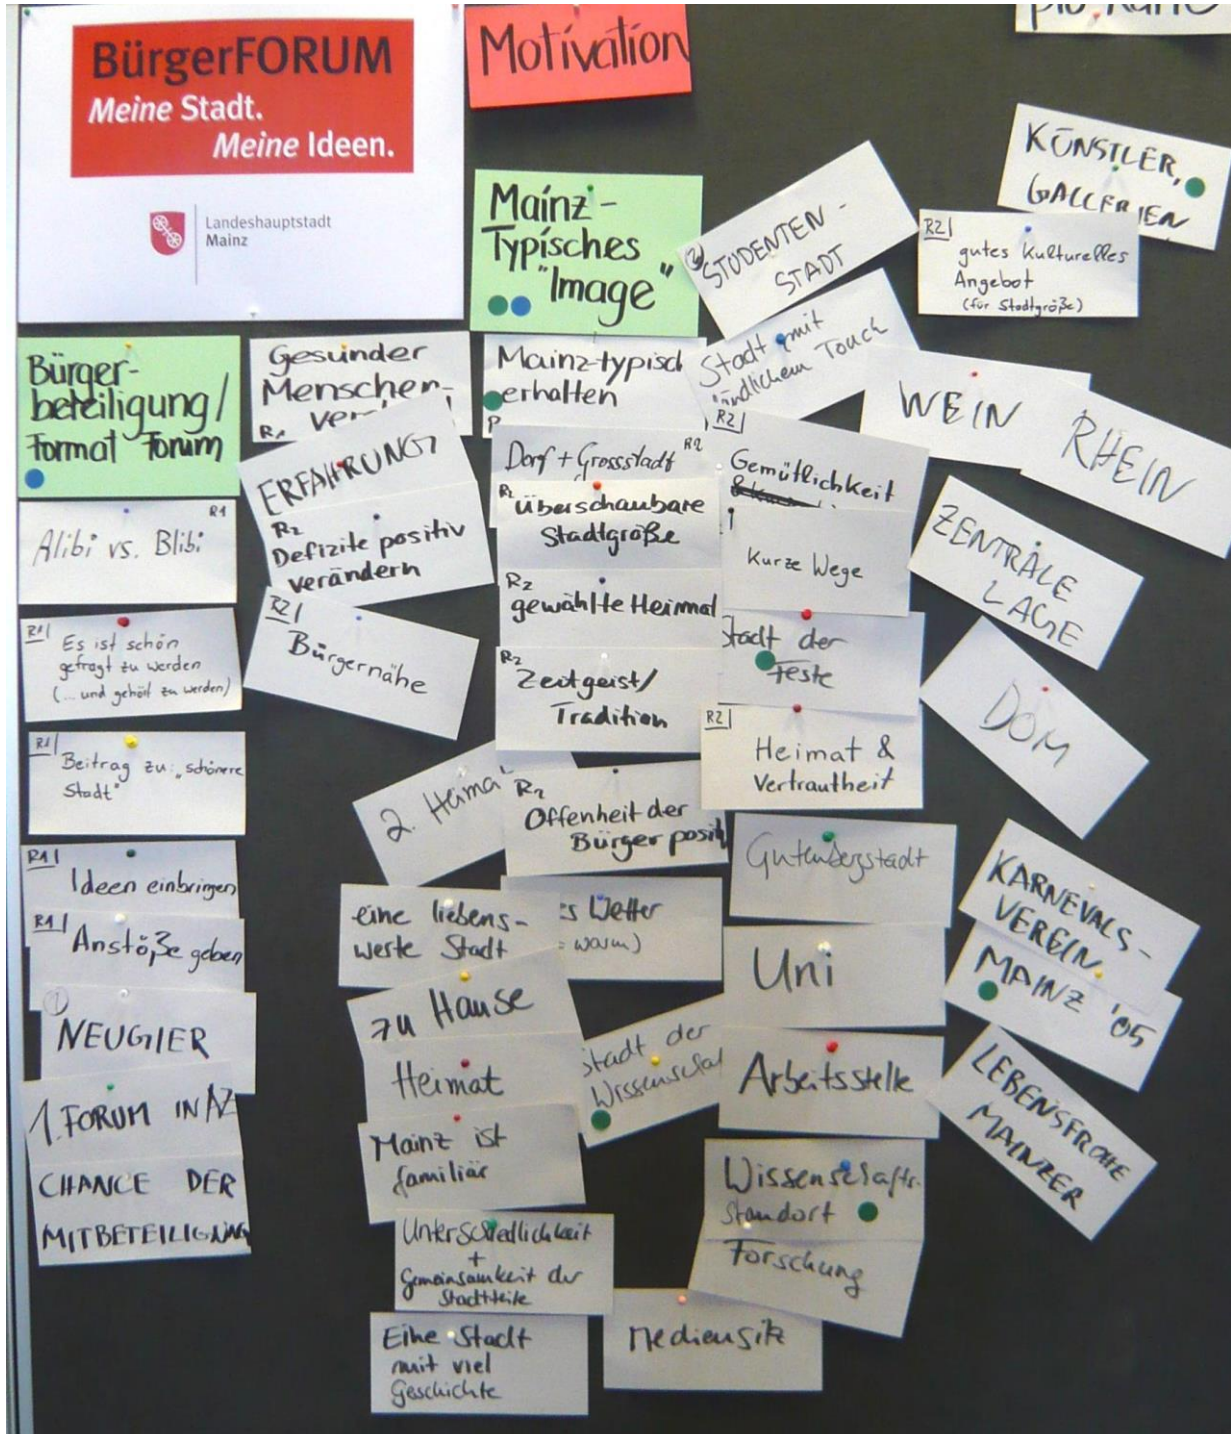 BürgerFORUM
Meine Stadt.
Meine Ideen.
Landeshauptstadt
Mainz
Motivation
pro Karte
Bürger-
beteiligung/
Format Forum
Alibi vs. Blibi
R1
R1
Es ist schön
gefragt zu werden
(... und gehört zu werden)
R1
Beitrag zu: „schönere
Stadt"
R1
Ideen einbringen
R1
Anstöße geben
1
NEUGIER
1. FORUM IN MZ
CHANCE DER
MITBETEILIGUNG
Gesunder
Menschen-
ERFAHRUNG
R2
Defizite positiv
verändern
R2
Bürgernähe
Mainz-
Typisches
"Image"
Mainz-typisch
erhalten
Dorf + Grossstadt
R2
R2
überschaubare
Stadtgröße
R2
gewählte Heimat
R2
Zeitgeist/
Tradition
2. Heimat
R2
Offenheit der
Bürger positi
eine liebens-
werte Stadt
es Wetter
= warm)
zu Hause
Heimat
Mainz ist
familiär
Unterschiedlichkeit
+
Gemeinsamkeit der
Stadtteile
Eine Stadt
mit viel
Geschichte
2
STUDENTEN-
STADT
Stadt mit
ländlichem Touch
R2
Gemütlichkeit
Kurze Wege
Stadt der
Feste
R2
Heimat &
Vertrautheit
Gutenbergstadt
Uni
Stadt der
Wissenschaf
Arbeitsstelle
Wissenschafts-
standort
Forschung
Mediensitz
KÜNSTLER,
GALLERIEN
R2
gutes kulturelles
Angebot
(für Stadtgröße)
WEIN
RHEIN
ZENTRALE
LAGE
DOM
KARNEVALS-
VEREIN
MAINZ '05
LEBENSFROHE
MAINZER